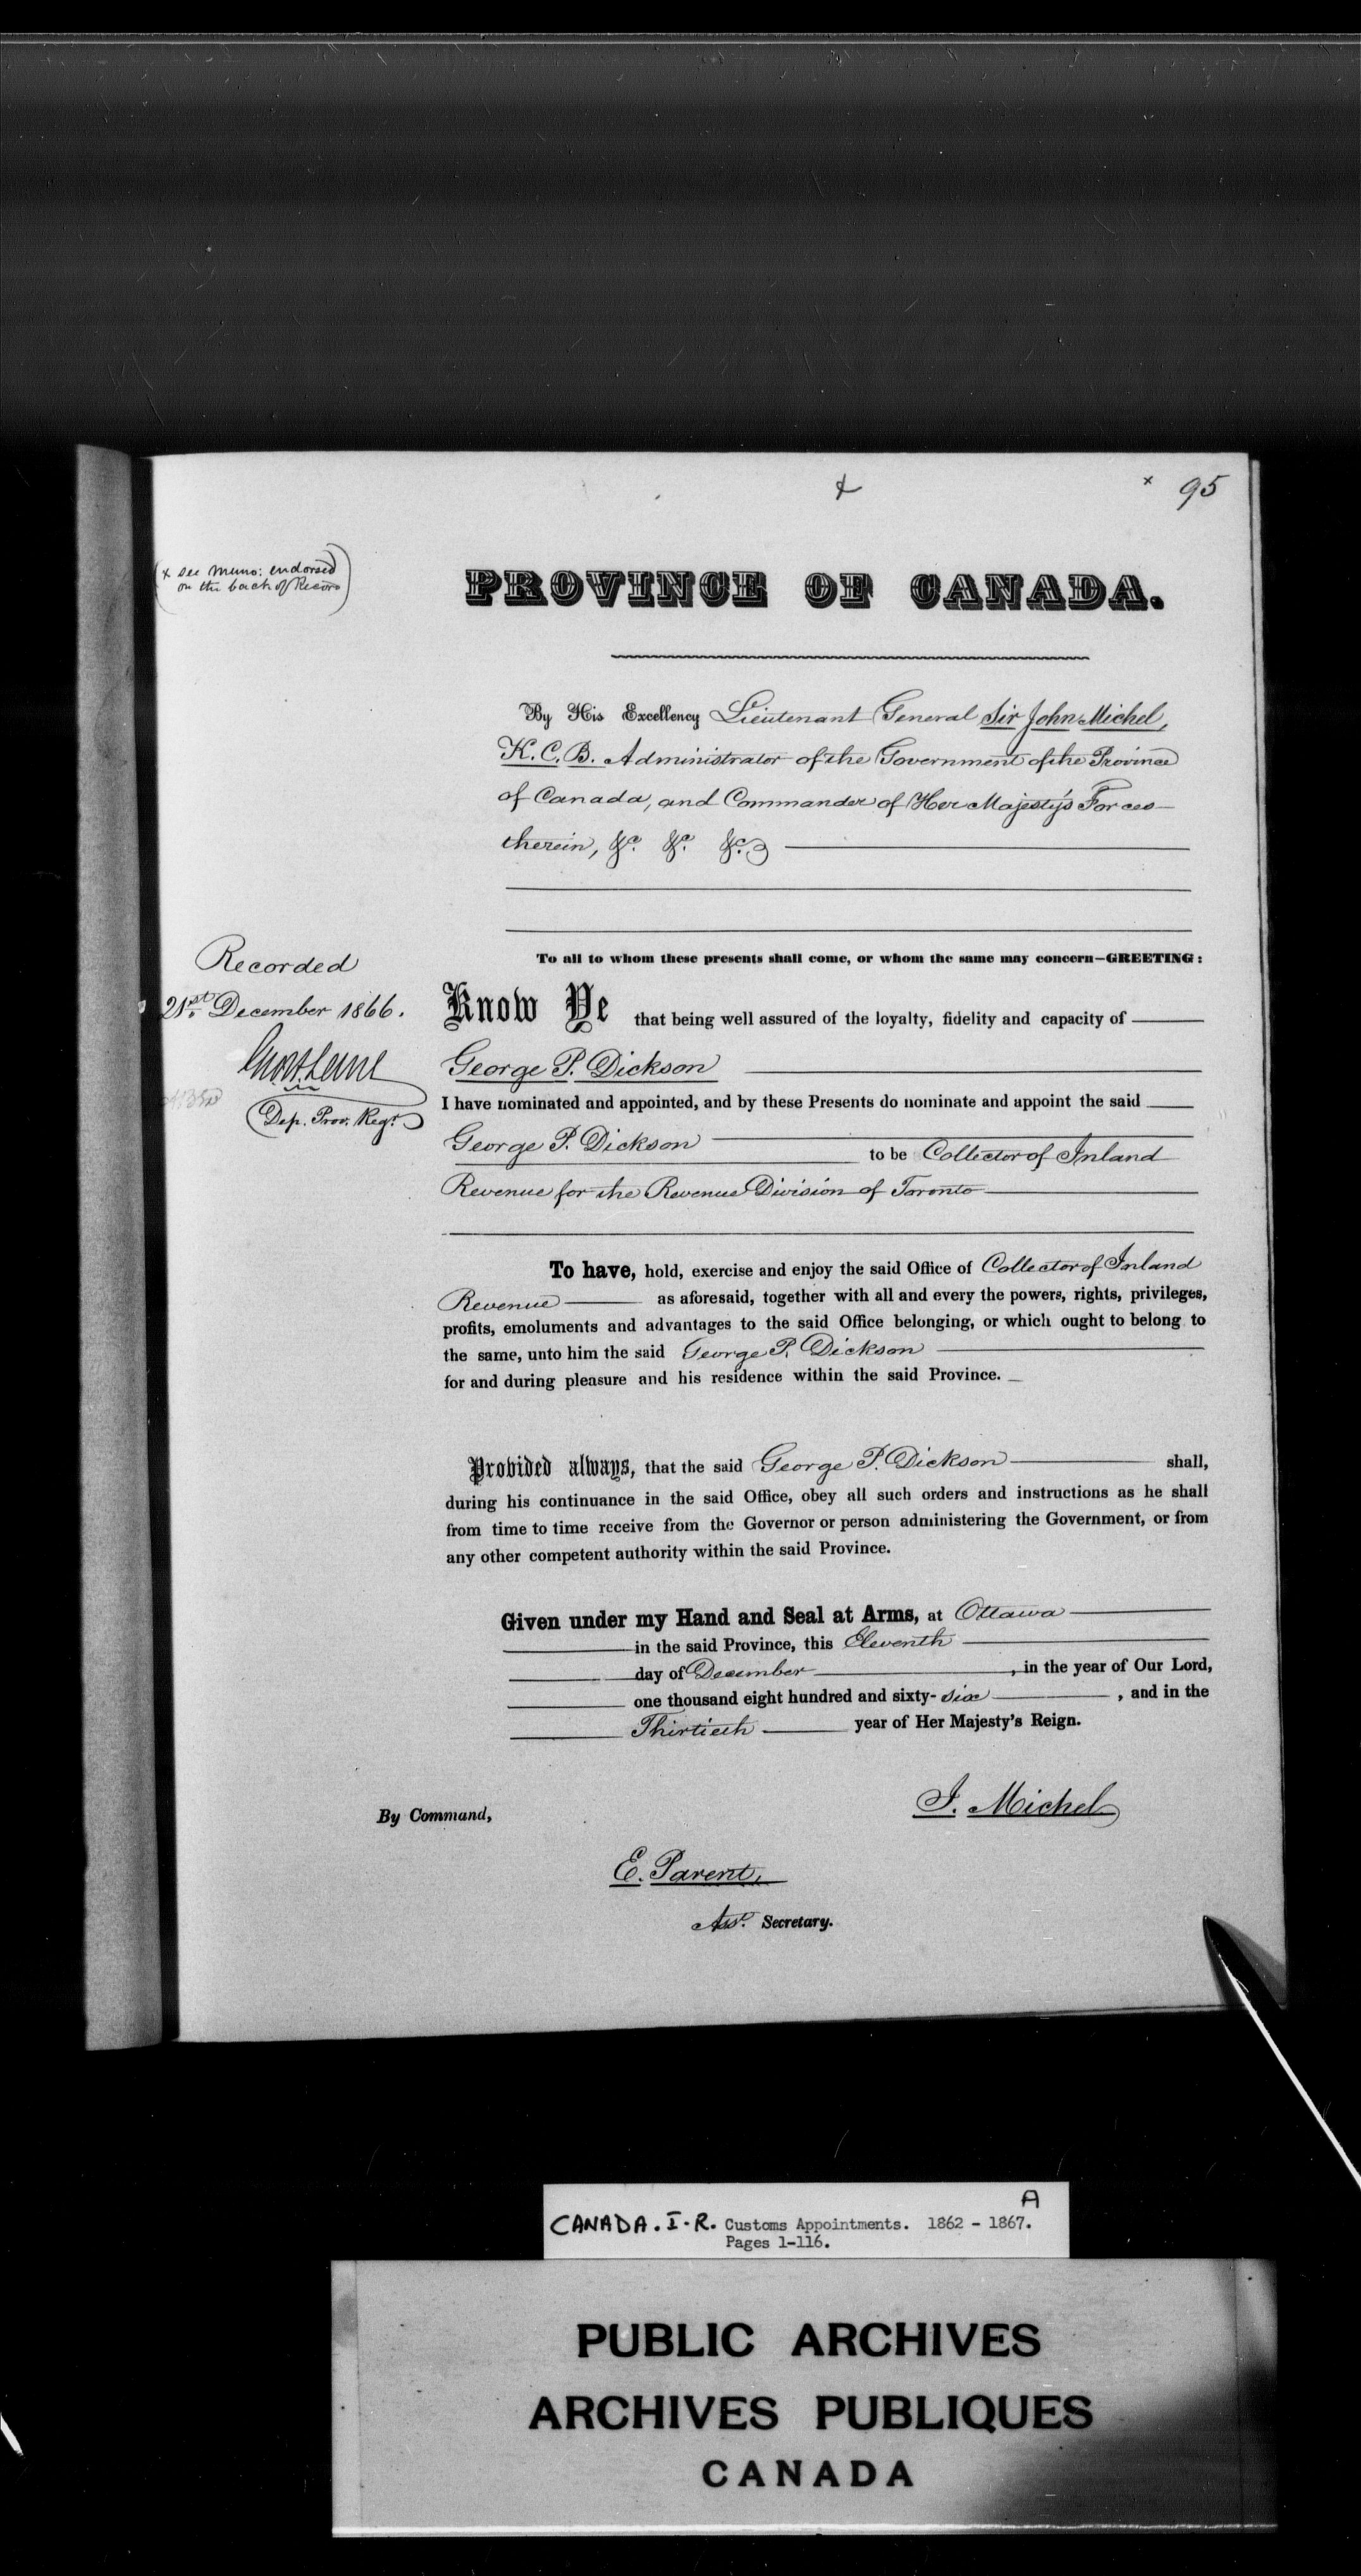 + × 95
(x see memo: endorsed
on the back of Record)
PROVINCE OF CANADA.
By His Excellency Lieutenant General Sir John Michel,
K.C.B. Administrator of the Government of the Province
of Canada, and Commander of Her Majesty's Forces
therein, &c. &c. &c.
To all to whom these presents shall come, or whom the same may concern—GREETING:
Recorded
21st December 1866.
Dep. Prov. Regr.
Know Ye that being well assured of the loyalty, fidelity and capacity of
George P. Dickson
I have nominated and appointed, and by these Presents do nominate and appoint the said
George P. Dickson to be Collector of Inland
Revenue for the Revenue Division of Toronto
To have, hold, exercise and enjoy the said Office of Collector of Inland
Revenue as aforesaid, together with all and every the powers, rights, privileges,
profits, emoluments and advantages to the said Office belonging, or which ought to belong to
the same, unto him the said George P. Dickson
for and during pleasure and his residence within the said Province.
Provided always, that the said George P. Dickson shall,
during his continuance in the said Office, obey all such orders and instructions as he shall
from time to time receive from the Governor or person administering the Government, or from
any other competent authority within the said Province.
Given under my Hand and Seal at Arms, at Ottawa
in the said Province, this Eleventh
day of December, in the year of Our Lord,
one thousand eight hundred and sixty-six, and in the
Thirtieth year of Her Majesty's Reign.
J. Michel
By Command,
E. Parent,
Asst. Secretary.
A
CANADA. I-R. Customs Appointments. 1862 - 1867.
Pages 1-116.
PUBLIC ARCHIVES
ARCHIVES PUBLIQUES
CANADA